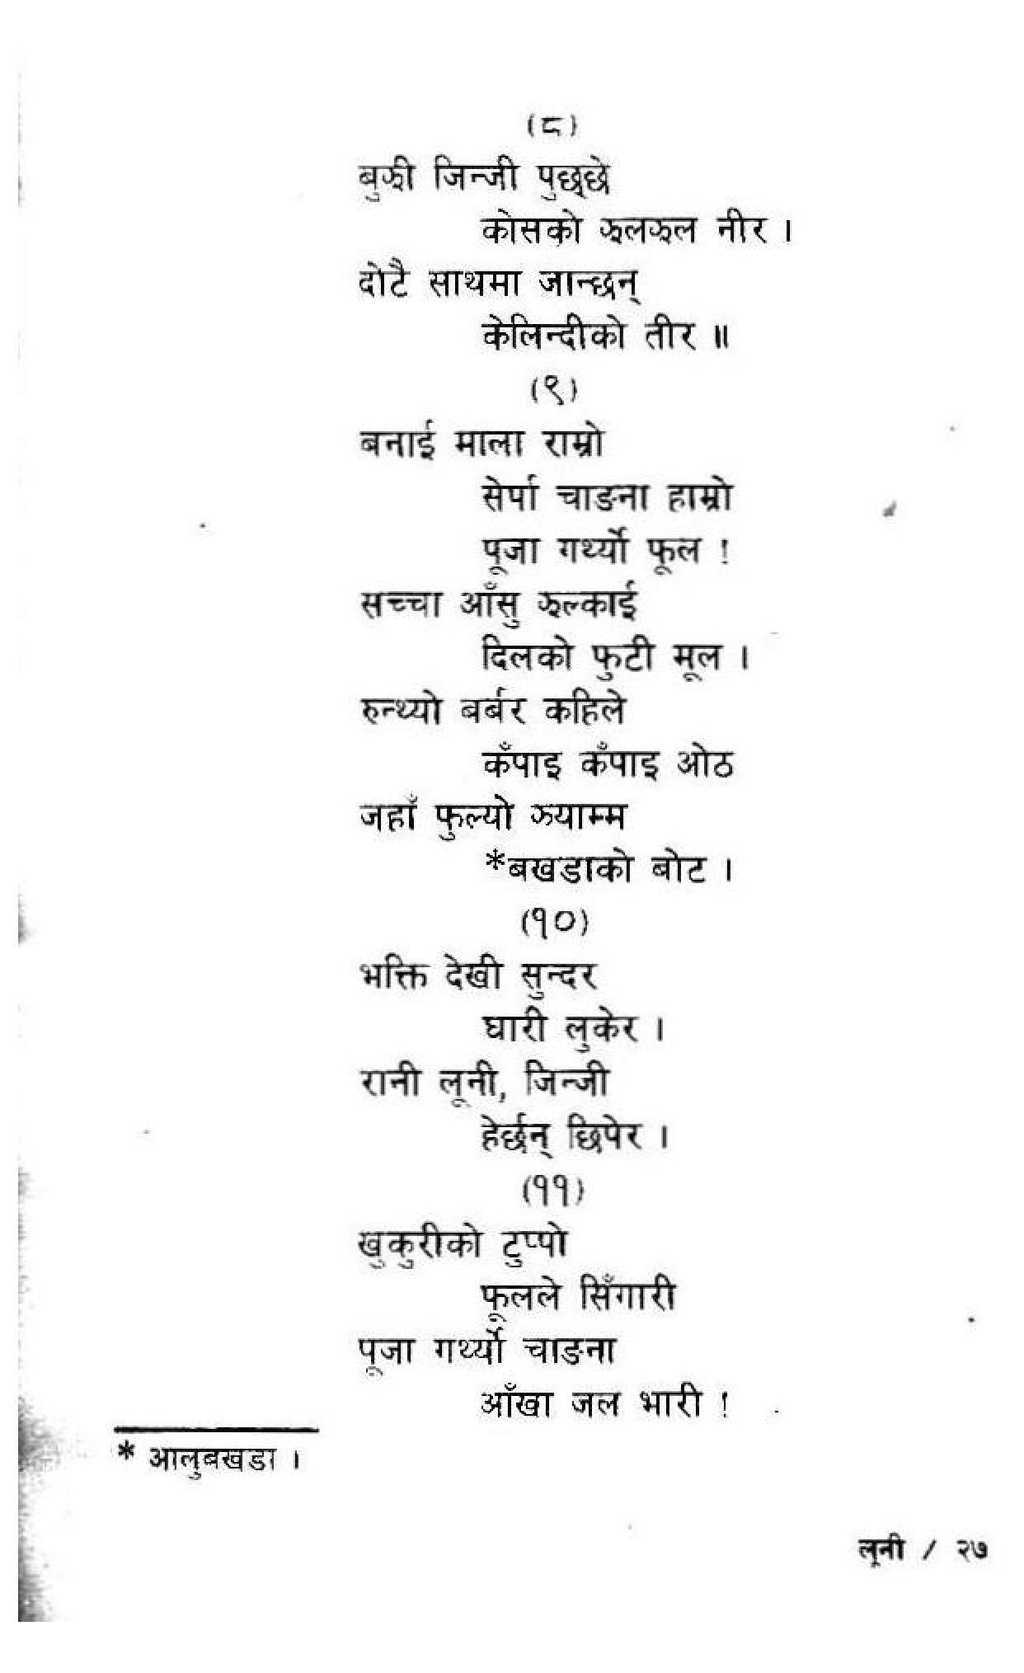 (८)
बुझी जिन्जी पुछ्छे
कोसको झलझल नीर ।
दोटै साथमा जान्छन्
केलिन्दीको तीर ॥
(९)
बनाई माला राम्रो
सेर्पा चाङना हाम्रो
पूजा गर्थ्यो फूल !
सच्चा आँसु झल्काई
दिलको फुटी मूल ।
रुन्थ्यो बर्बर कहिले
कँपाइ कँपाइ ओठ
जहाँ फुल्यो झ्याम्म
*बखडाको बोट ।
(१०)
भक्ति देखी सुन्दर
घारी लुकेर ।
रानी लूनी, जिन्जी
हेर्छन् छिपेर ।
(११)
खुकुरीको टुप्पो
फूलले सिँगारी
पूजा गर्थ्यो चाङना
आँखा जल भारी !
* आलुबखडा ।
लूनी / २७